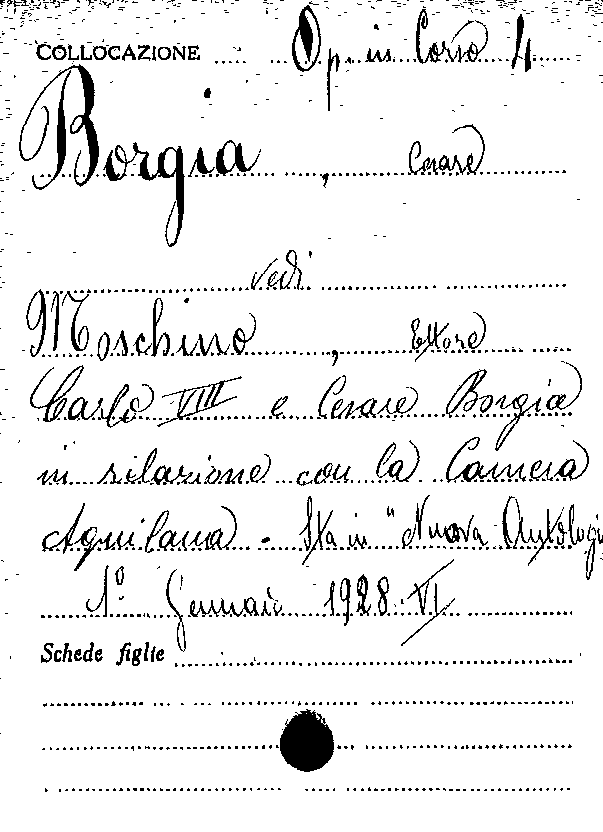 COLLOCAZIONE Op. in Corso 4
Borgia, Cesare
vedi
Moschino, Ettore
Carlo VIII e Cesare Borgia
in relazione con la Camera
Aquilana. Sta in "Nuova Antologi
1° Gennaio 1928. VI
Schede figlie